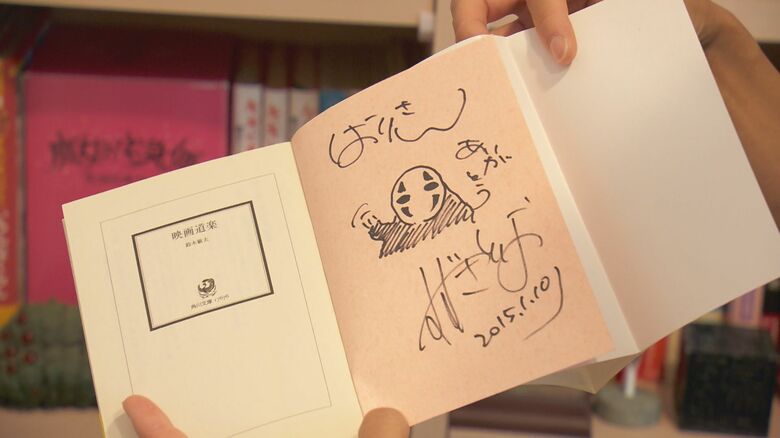 映画道楽
鈴木敏夫
角川文庫
ぱりさん
ありが
とう
2015.1.10